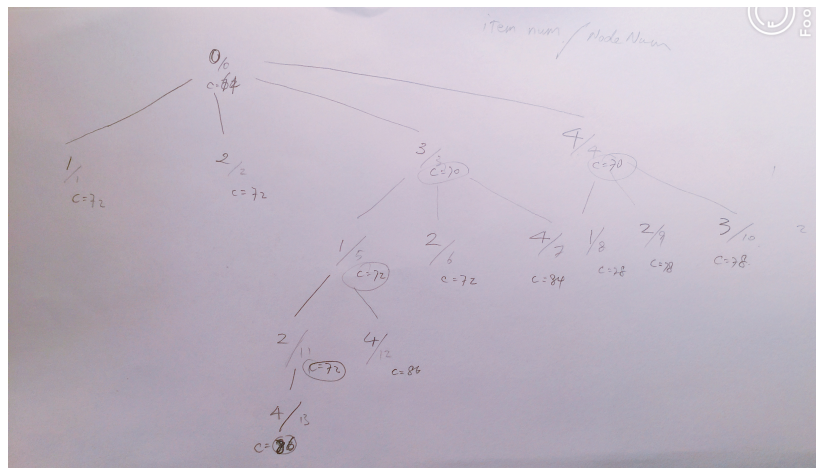 item num / Node Num
Foo
0/0
c=64
1/1
c=72
2/2
c=72
3/3
c=70
4/4
c=70
1/5
c=72
2/6
c=72
4/7
c=84
1/8
c=78
2/9
c=78
3/10
c=78.
2
2/11
c=72
4/12
c=86
4/13
c=86